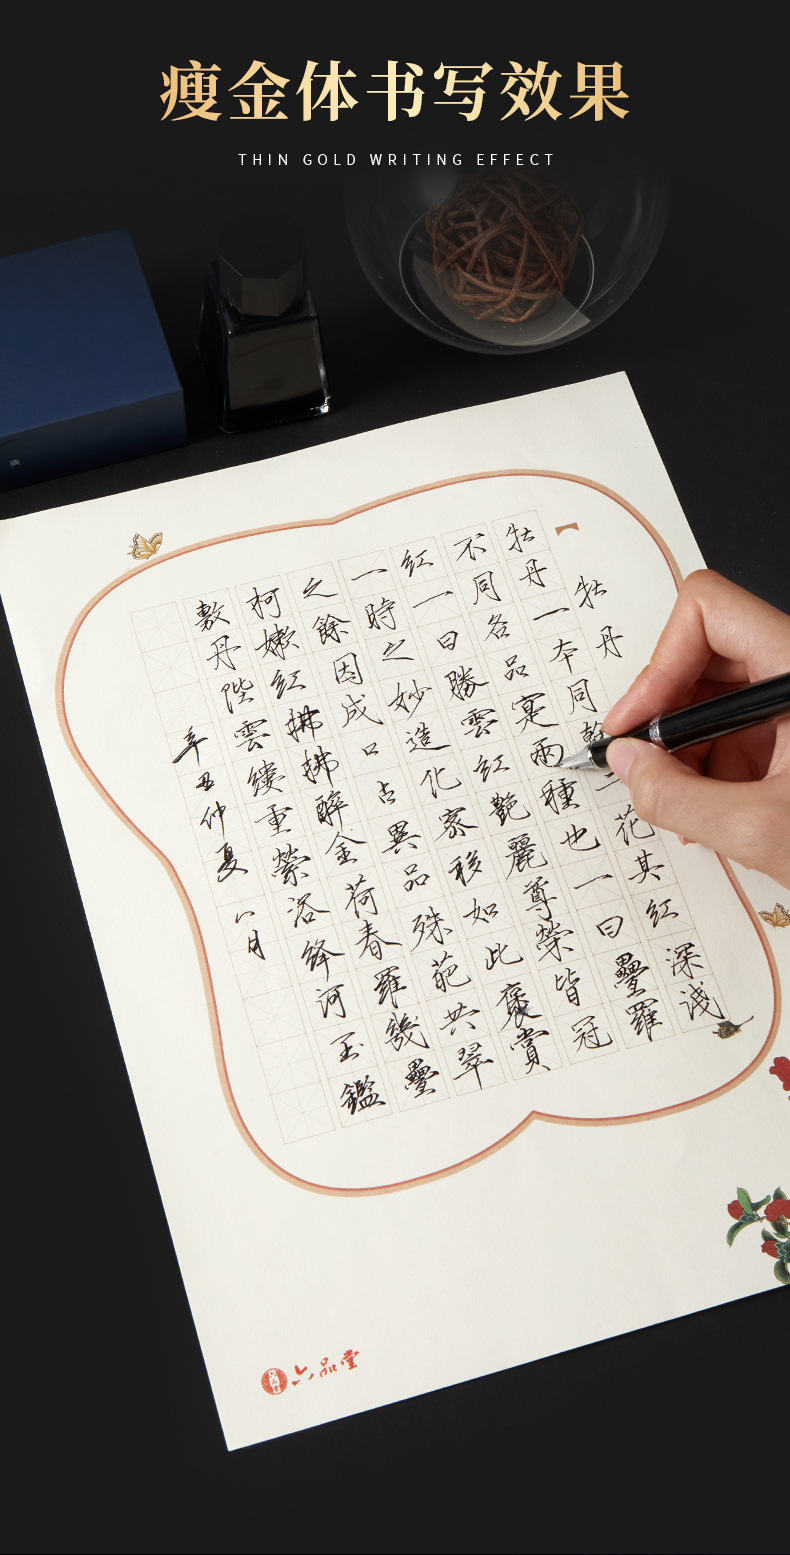 瘦金体书写效果
THIN GOLD WRITING EFFECT
牡丹
牡丹一本同幹二花其红深浅
不同各品寔兩種也一曰疊羅
红一曰勝雲红艷麗尊榮皆冠
一時之妙造化密移如此褒賞
之餘因成口占異品殊葩共翠
柯嫩红拂拂醉金荷春羅幾疊
敷丹陛雲缕重縈浴绛河玉鑑
辛丑仲夏 八月
六品堂